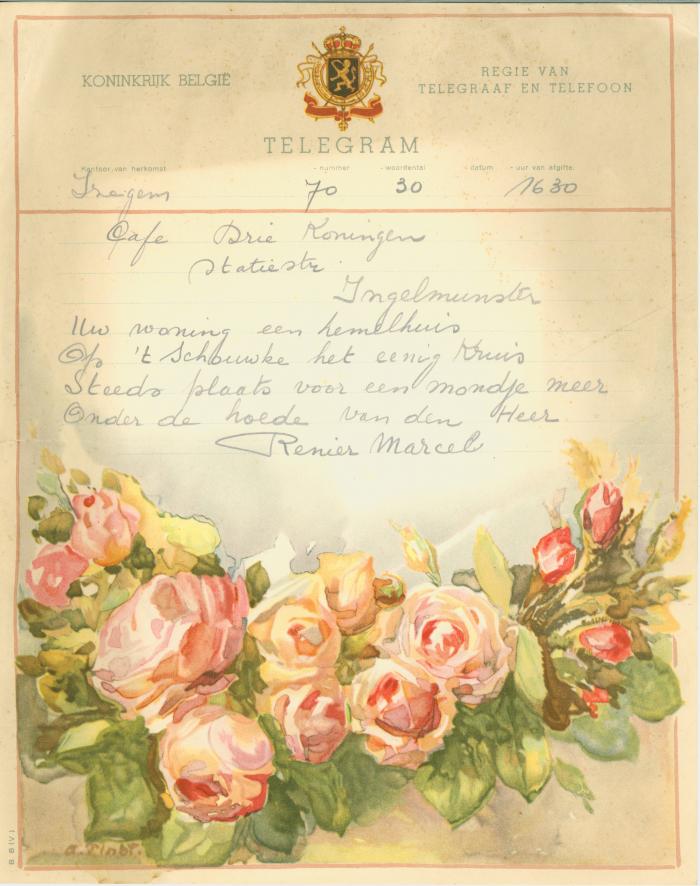 KONINKRIJK BELGIË
REGIE VAN
TELEGRAAF EN TELEFOON
TELEGRAM
Kantoor van herkomst - nummer - woordental - datum - uur van afgifte
Izegem 70 30 1630
Cafe Drie Koningen
Statiestr.
Ingelmunster
Uw woning een hemelhuis
Op 't Schouwke het eenig Kruis
Steeds plaats voor een mondje meer
Onder de hoede van den Heer
Renier Marcel